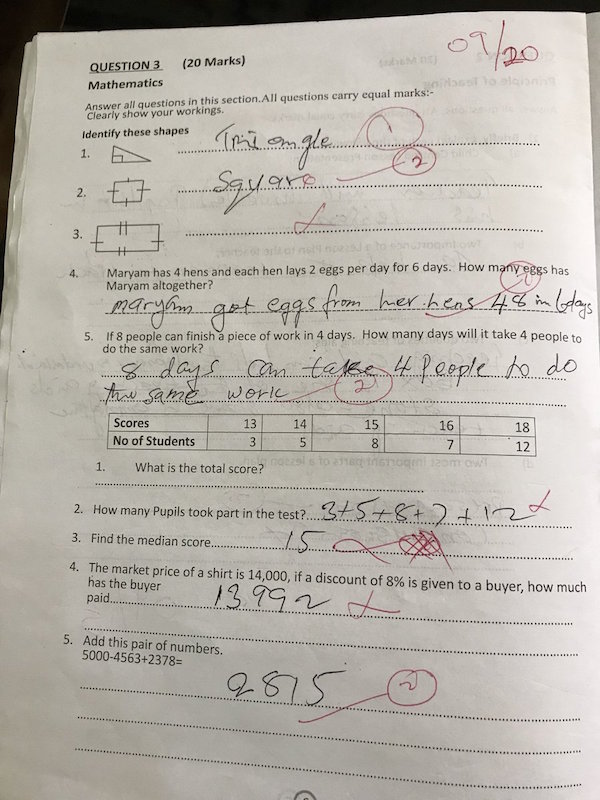 09/20
QUESTION 3 (20 Marks)
Mathematics
Answer all questions in this section.All questions carry equal marks:-
Clearly show your workings.
Identify these shapes
1. Triangle 1
2. Square 2
3.
4. Maryam has 4 hens and each hen lays 2 eggs per day for 6 days. How many eggs has
Maryam altogether? 2
maryam got eggs from her hens 48 in 6days
5. If 8 people can finish a piece of work in 4 days. How many days will it take 4 people to
do the same work?
8 days can take 4 People to do
the same work 2
Scores 13 14 15 16 18
No of Students 3 5 8 7 12
1. What is the total score?
2. How many Pupils took part in the test? 3+5+8+7+12
3. Find the median score 15
4. The market price of a shirt is 14,000, if a discount of 8% is given to a buyer, how much
has the buyer
paid 13992
5. Add this pair of numbers.
5000-4563+2378=
2815 2